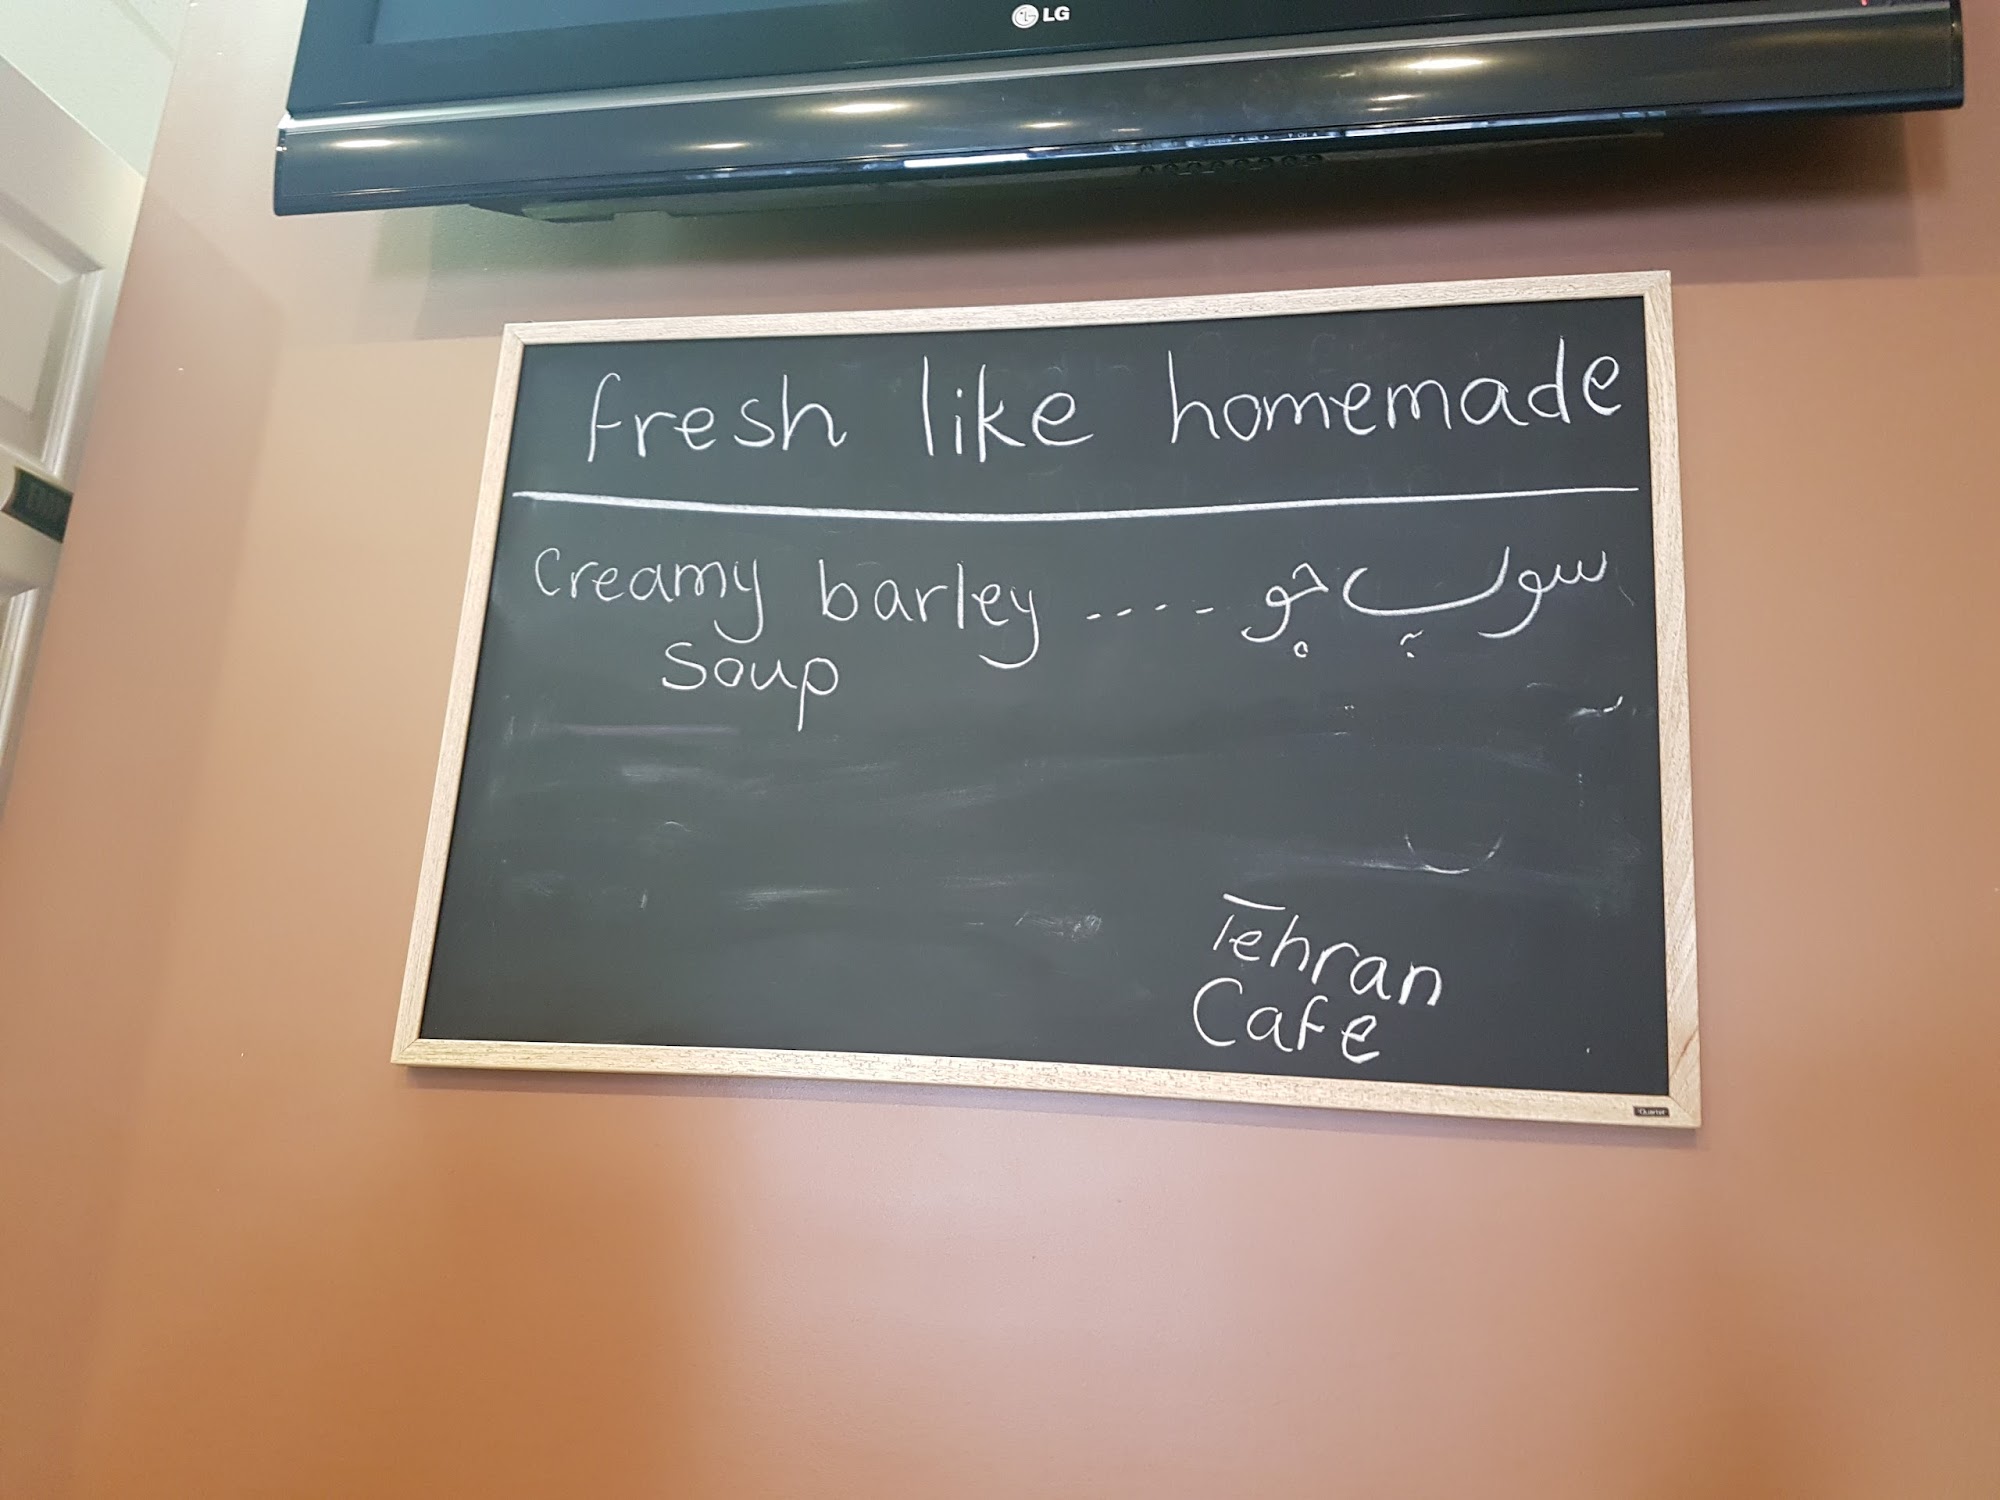 LG
fresh like homemade
Creamy barley .... سوپ جو
Soup
Tehran
Cafe
Quartet